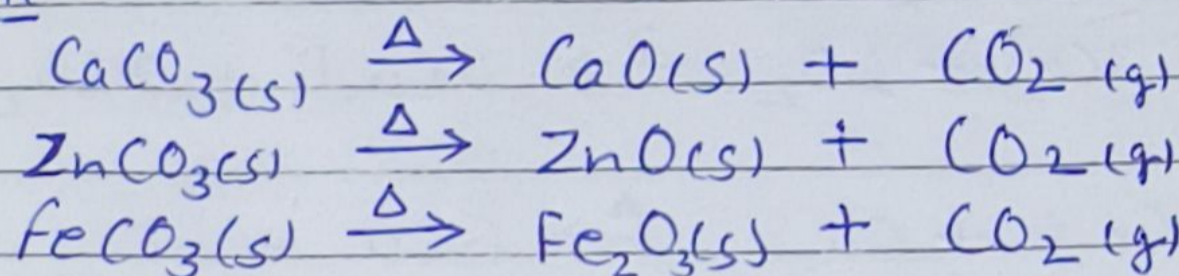 CaCO₃(s) →Δ CaO(s) + CO₂(g)
ZnCO₃(s) →Δ ZnO(s) + CO₂(g)
FeCO₃(s) →Δ Fe₂O₃(s) + CO₂(g)